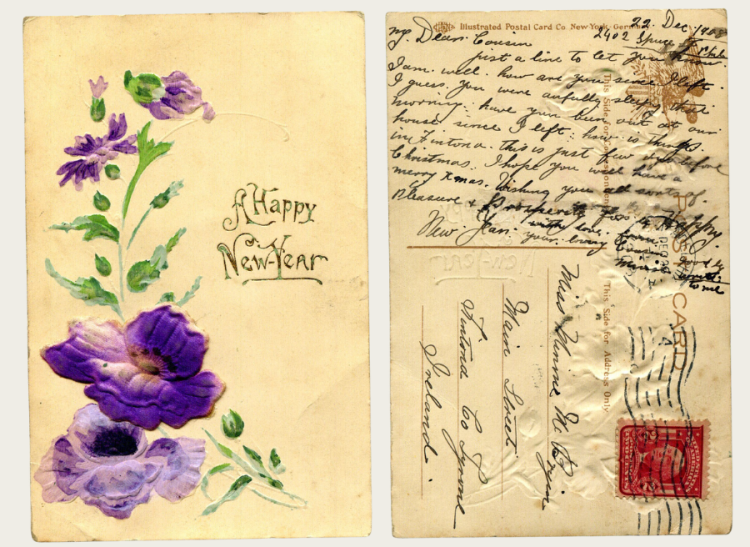 A Happy
New-Year
Illustrated Postal Card Co New-York-Germany
22 Dec. 1908
2402 Spruce St
Phila
my Dear Cousin
just a line to let you know
I am well. how are you since I left.
I guess you were awfully sleepy that
morning. have you been out at our
house since I left. how is things
in Fintona. this is just few days before
Christmas. I hope you will have a
merry xmas. Wishing you all sorts of
Pleasure & Prosperity for a Happy
New. Year. with love from
your loving Cousin
good by
write
to me
This Side for Correspondence
POST CARD
This Side for Address Only
Miss Minnie M.
Main Street
Fintona Co Tyrone
Ireland.